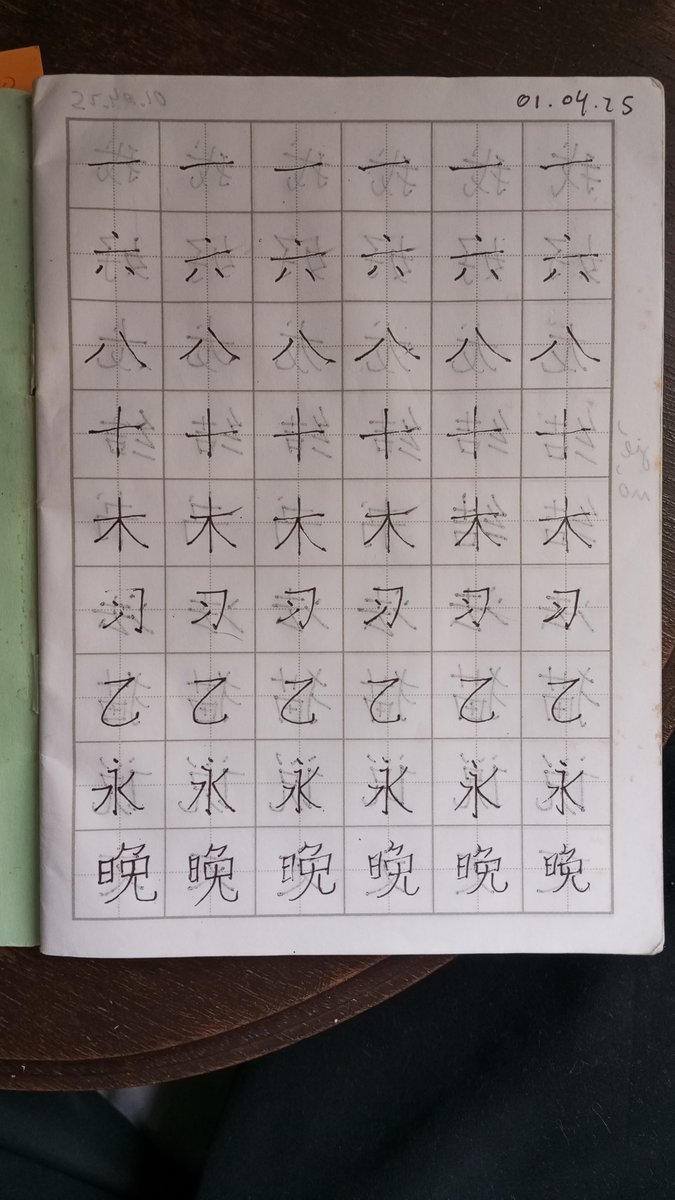 01.04.25
一 一 一 一 一 一
六 六 六 六 六 六
八 八 八 八 八 八
十 十 十 十 十 十
木 木 木 木 木 木
习 习 习 习 习 习
乙 乙 乙 乙 乙 乙
永 永 永 永 永 永
晚 晚 晚 晚 晚 晚